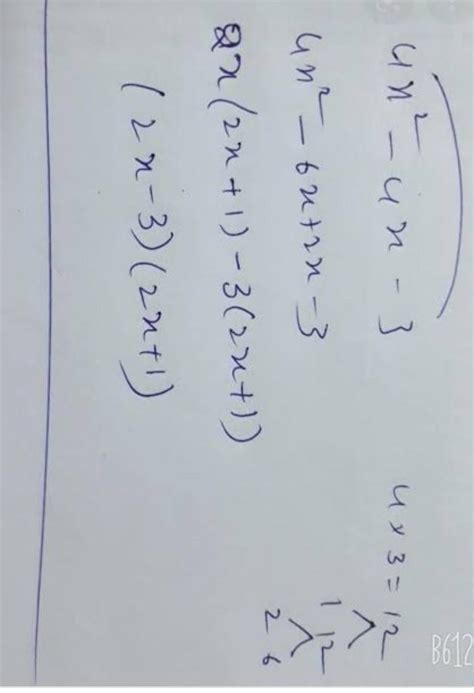 4x² - 4x - 3
4x² - 6x + 2x - 3
2x(2x+1) - 3(2x+1)
(2x-3)(2x+1)
4 × 3 = 12
1 12
2 6
B612